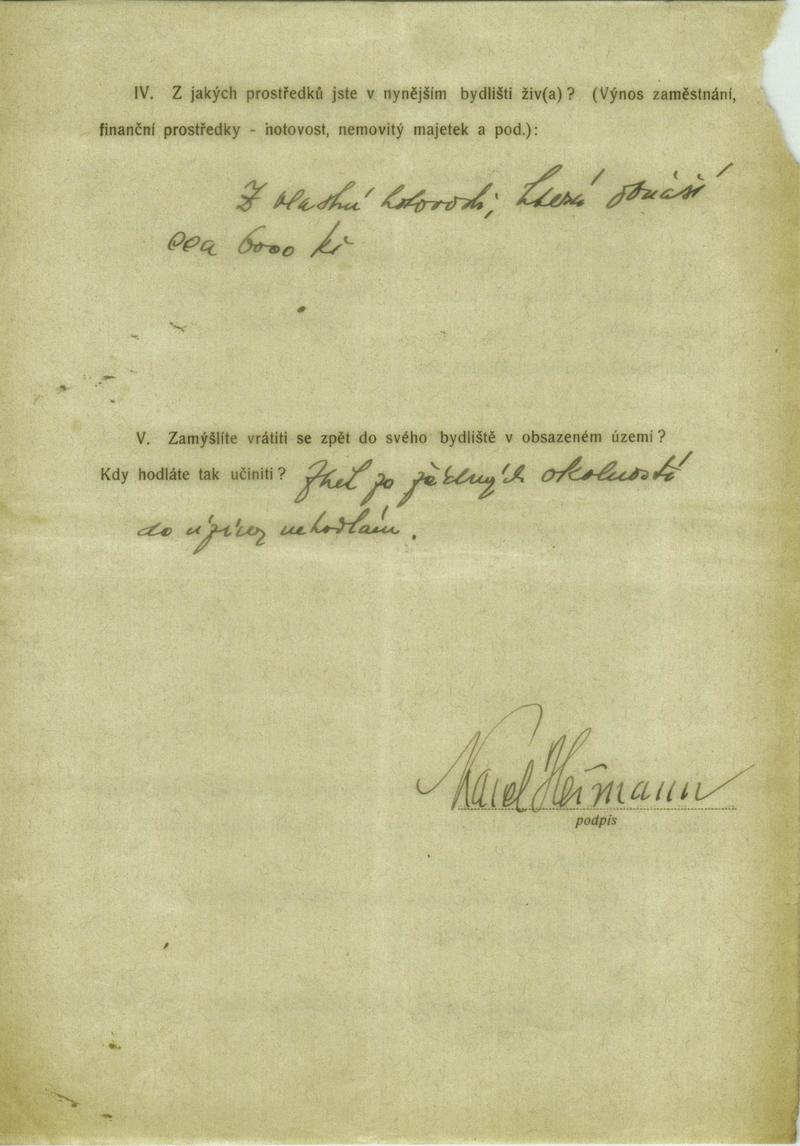 IV. Z jakých prostředků jste v nynějším bydlišti živ(a)? (Výnos zaměstnání,
finanční prostředky - hotovost, nemovitý majetek a pod.):
Z vlastní hotovosti, která obnáší
cca 6000 Kč
V. Zamýšlíte vrátiti se zpět do svého bydliště v obsazeném území?
Kdy hodláte tak učiniti? okolností
do nehodlám.
Karel Heřmann
podpis